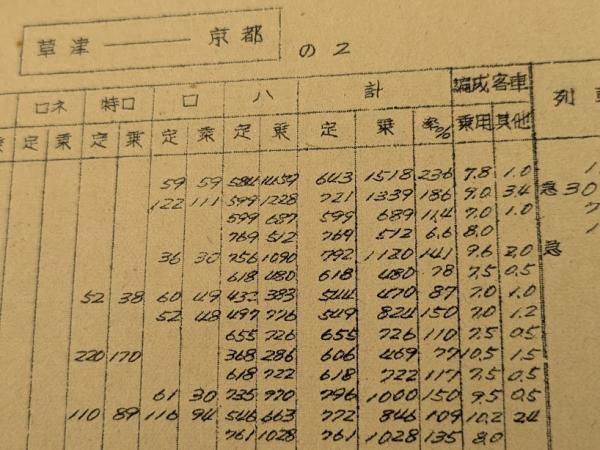 草津 ―― 京都 の2
ロネ 特ロ ロ ハ 計 編成客車 列
乗 定 乗 定 乗 定 乗 定 乗 定 乗 率% 乗用 其他
59 59 584 1459 643 1518 236 7.8 1.0
122 111 599 1228 721 1339 186 9.0 3.4 急 30
599 687 599 689 11.4 7.0 1.0
769 512 769 512 6.6 8.0
36 30 756 1090 792 1120 141 9.6 2.0 急
618 480 618 480 78 7.5 0.5
52 38 60 49 432 383 544 470 87 7.0 1.0
52 48 497 776 549 824 150 7.0 1.2
655 726 655 726 110 7.5 0.5
220 170 368 286 606 469 77 10.5 1.5
618 722 618 722 117 7.5 0.5
61 30 735 770 796 1000 150 9.5 0.5
110 89 116 94 546 663 772 846 109 10.2 24
761 1028 761 1028 135 8.0